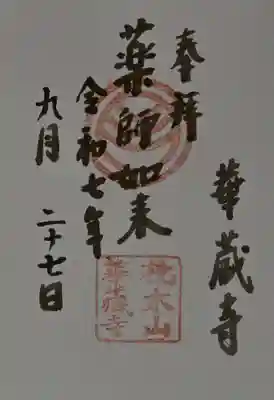 奉拝
薬師如来
令和七年
九月 二十七日
華蔵寺
華蔵寺